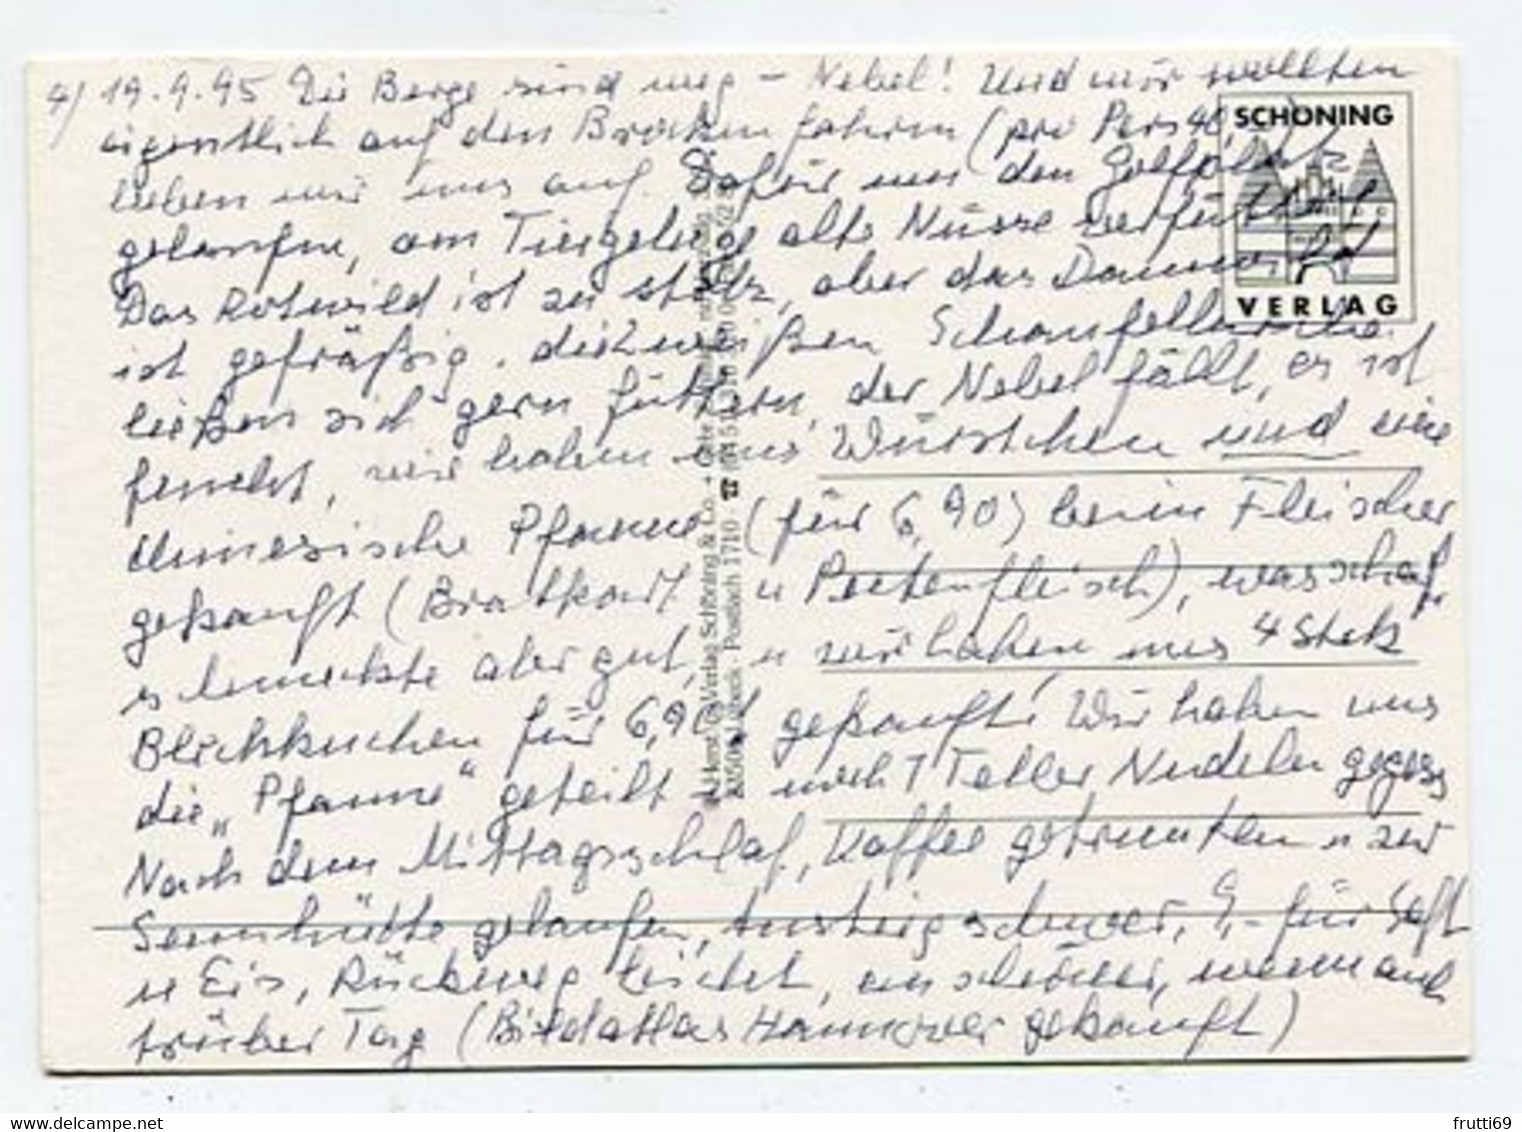 4/ 19.9.95 Die Berge sind weg – Nebel! Und wir wollten
eigentlich auf den Brocken fahren (pro Pers 40
wir uns auf. Dafür um den Golfplatz
gelaufen, am Tiergehege alte Nüsse verfüttert
Das Rotwild ist zu stolz, aber das Damwild
ist gefräßig. die weißen Schaufelhirsche
ließen sich gern füttern, der Nebel fällt, es ist
feucht, wir haben uns Würstchen und eine
chinesische Pfanne (für 6,90) beim Fleischer
gekauft (Bratkart u Putenfleisch), was scharf
schmeckte aber gut, u wir haben uns 4 Stck
Blechkuchen für 6,90 gekauft! Wir haben uns
die „Pfanne“ geteilt u noch 1 Teller Nudeln gegess
Nach dem Mittagsschlaf, Kaffee getrunken u zur
Sennhütte gelaufen, Anstieg schwer, 9,- für Saft
u Eis, Rückweg leicht, ein schöner, wenn auch
trüber Tag (Bildatlas Hannover gekauft)
SCHÖNING
VERLAG
Verlag Schöning & Co. + Gebr. Schmidt
Lübeck · Postfach 1710 ☎
delcampe.net
frutti69